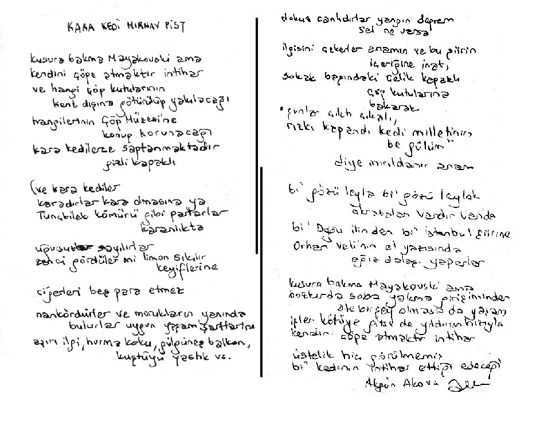 KARA KEDİ MIRNAV PİST
kusura bakma Mayakovski ama
kendini çöpe atmaktır intihar
ve hangi çöp kutularının
kent dışına götürülüp yakılacağı
hangilerinin Çöp Müzesine
konup korunacağı
kara kedilerce saptanmaktadır
gizli kapaklı
(ve kara kediler
karadırlar kara olmasına ya
Tunçbilek kömürü gibi parlarlar
karanlıkta
uyuşuk sayılırlar
gördüler mi limon sıkılır
keyiflerine
ciğerleri beş para etmez
nankördürler ve morukların yanında
bulurlar uygun yaşam şartlarını
aşırı ilgi, hurma koku, gülgüneş balkon,
kuştüyü yastık vs.
dokuz canlıdırlar yangın deprem
sel ne varsa
ilgisini çekerler anamın ve bu şiirin
içeriğine inat,
sokak başındaki çelik kapaklı
çöp kutularına
bakarak
"şunlar çıktı çıkalı,
rızkı kapandı kedi milletinin
be gülüm"
diye mırıldanır anam
bi' gözü leyla bi' gözü leylak
akrabaları vardır Van'da
bi' Doğu ilinden bi' İstanbul şiirine
Orhan Veli'nin el yazısında
yaparlar
kusura bakma Mayakovski ama
bozkırda soba yakma girişiminden
bir şey olmasa da yaşam
işler kötüye gitse de yıldırım hızıyla
kendini çöpe atmaktır intihar
üstelik hiç görülmemiş
bi' kedinin intihar ettiği edeceği
Akgün Akova